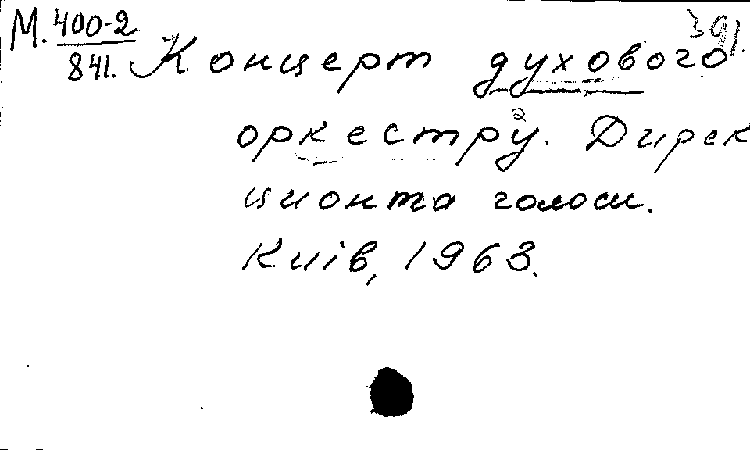 М. 400-2 391.
841. Концерт духового
оркестру. Дирек
ционта голоси.
Київ, 1963.